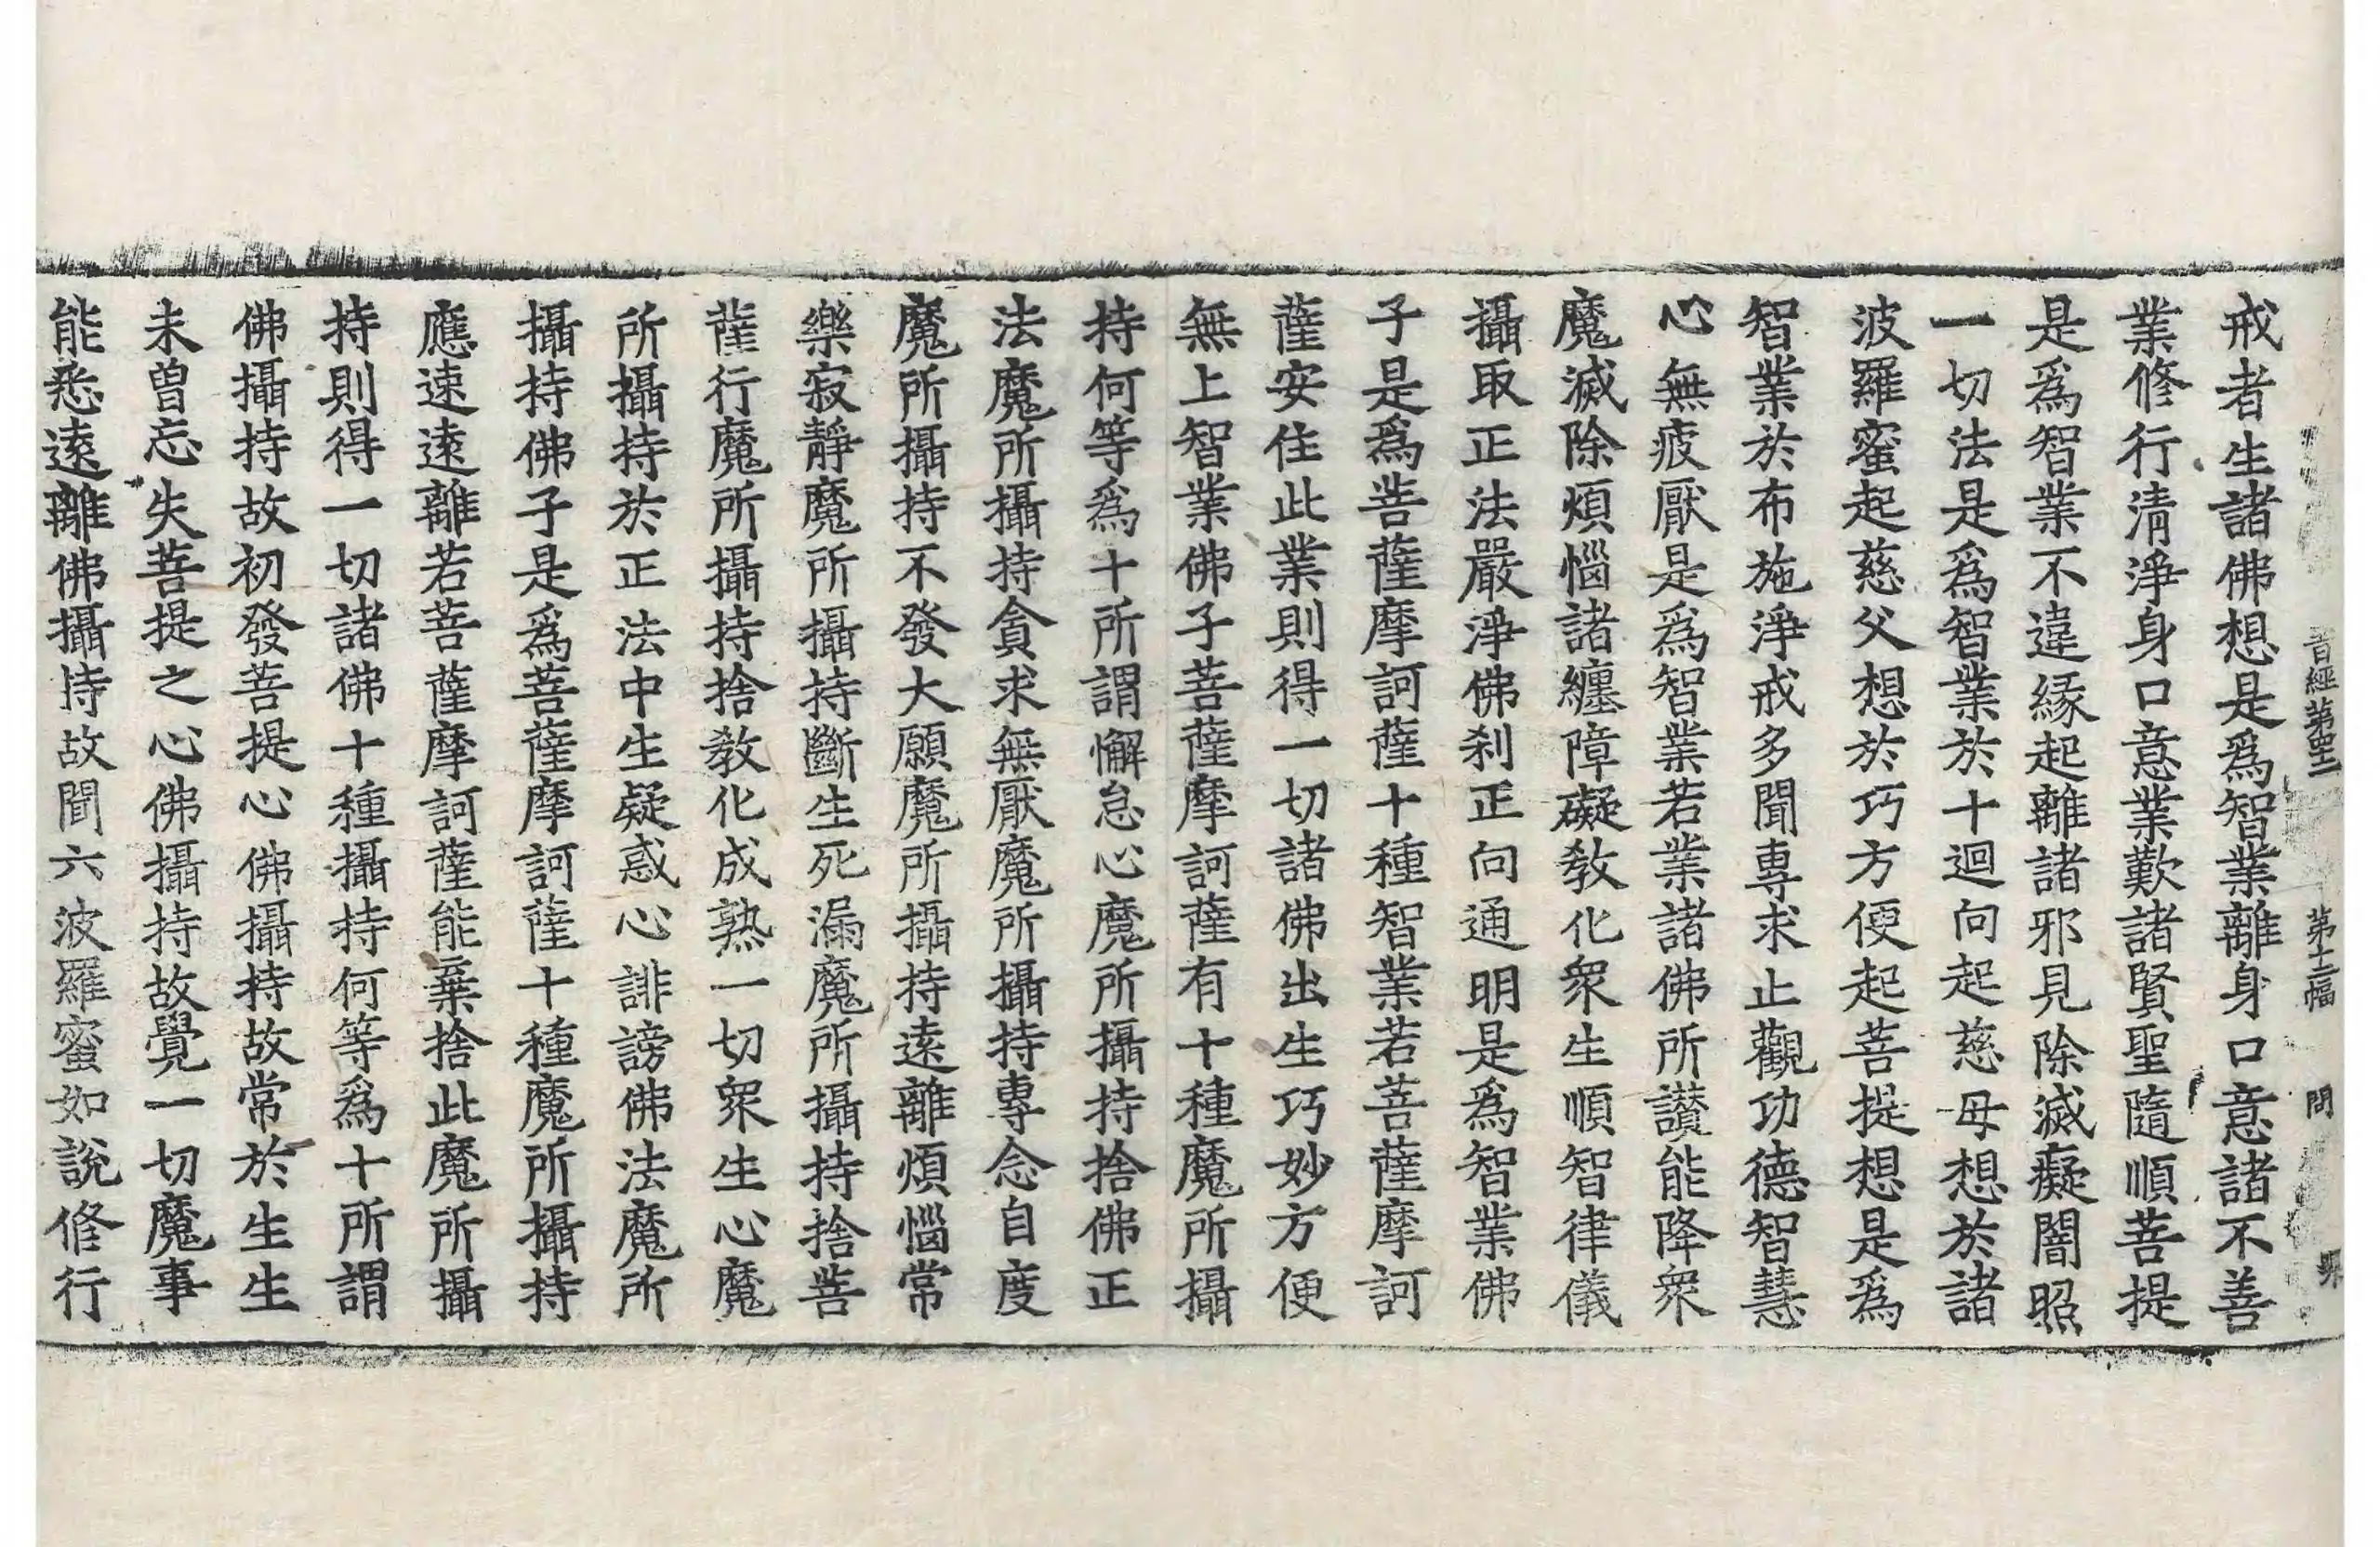 首經第四十二 第十三幅 問
戒者生諸佛想是爲智業離身口意諸不善
業修行清淨身口意業歎諸賢聖隨順菩提
是爲智業不違緣起離諸邪見除滅癡闇照
一切法是爲智業於十迴向起慈母想於諸
波羅蜜起慈父想於巧方便起菩提想是爲
智業於布施淨戒多聞專求止觀功德智慧
心無疲厭是爲智業若業諸佛所讃能降衆
魔滅除煩惱諸纏障礙教化衆生順智律儀
攝取正法嚴淨佛刹正向通明是爲智業佛
子是爲菩薩摩訶薩十種智業若菩薩摩訶
薩安住此業則得一切諸佛出生巧妙方便
無上智業佛子菩薩摩訶薩有十種魔所攝
持何等爲十所謂懈怠心魔所攝持捨佛正
法魔所攝持貪求無厭魔所攝持專念自度
魔所攝持不發大願魔所攝持遠離煩惱常
樂寂靜魔所攝持斷生死漏魔所攝持捨菩
薩行魔所攝持捨教化成熟一切衆生心魔
所攝持於正法中生疑惑心誹謗佛法魔所
攝持佛子是爲菩薩摩訶薩十種魔所攝持
應速遠離若菩薩摩訶薩能棄捨此魔所攝
持則得一切諸佛十種攝持何等爲十所謂
佛攝持故初發菩提心佛攝持故常於生生
未曾忘失菩提之心佛攝持故覺一切魔事
能悉遠離佛攝持故聞六波羅蜜如說修行